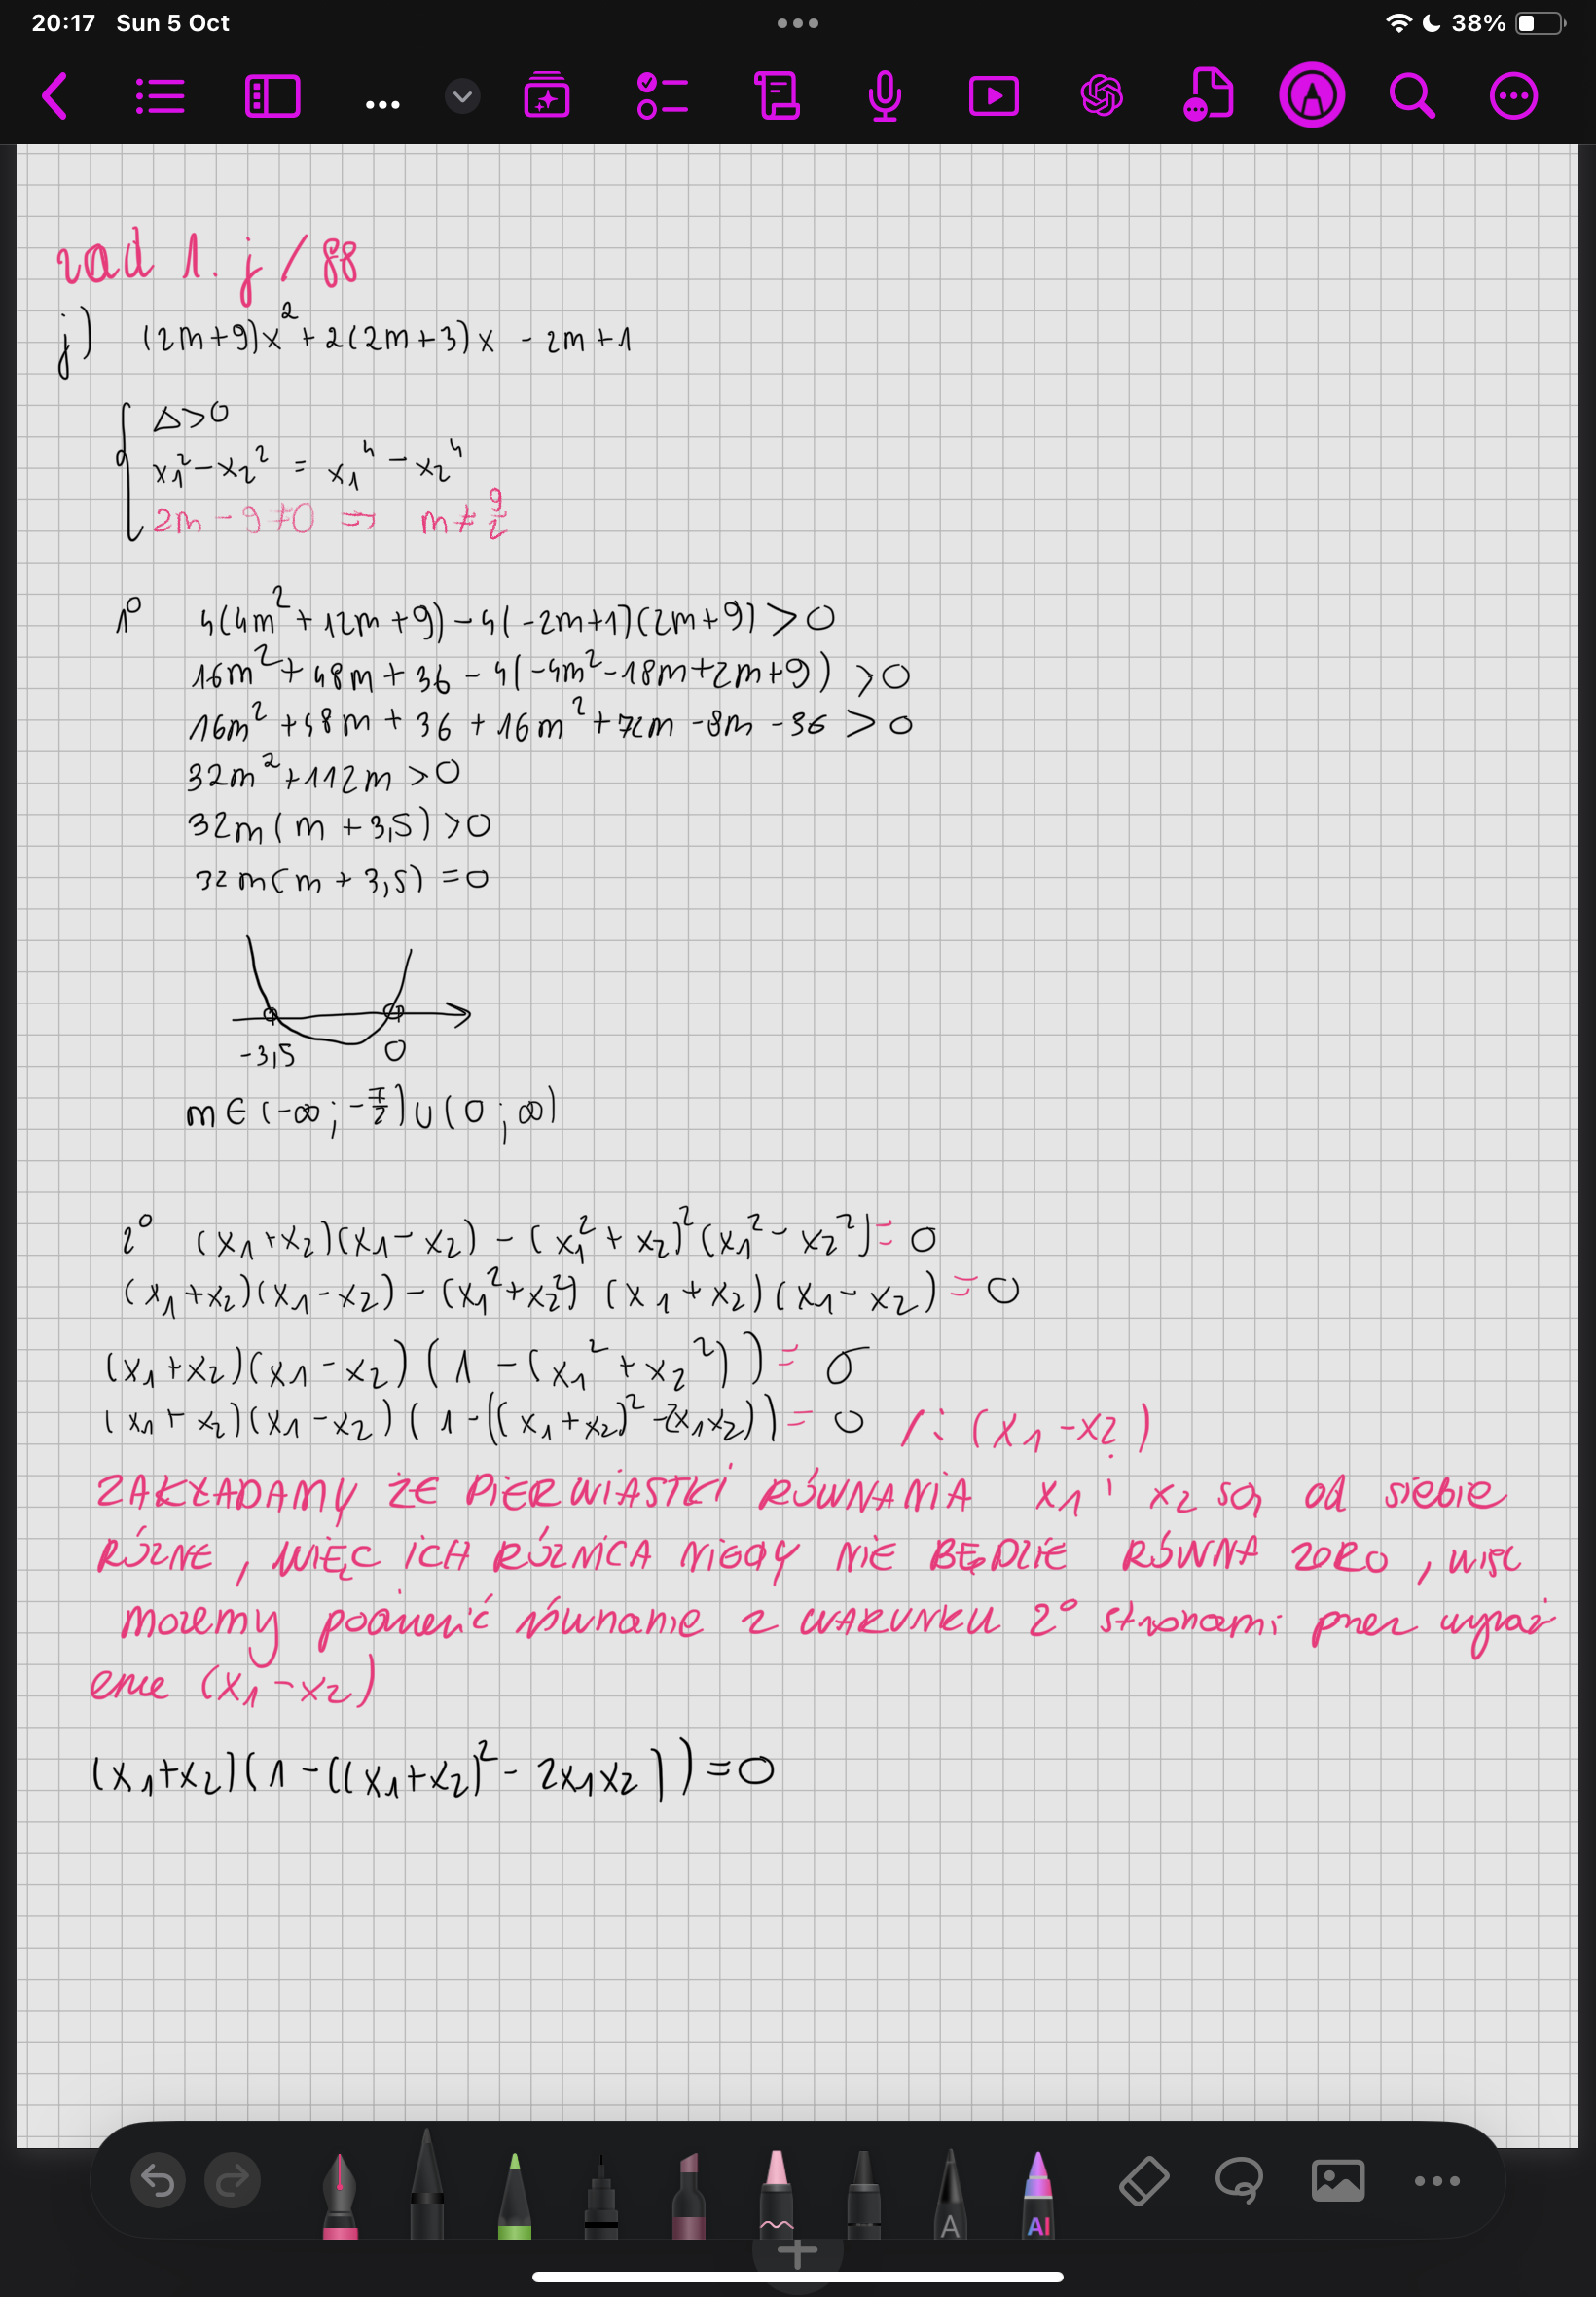 20:17 Sun 5 Oct
38%
zad 1. j / 88
j) (2m+9)x² + 2(2m+3)x - 2m+1
Δ>0
x₁² - x₂² = x₁⁴ - x₂⁴
2m - 9 ≠ 0 => m ≠ 9/2
1° 4(4m² + 12m + 9) - 4(-2m+1)(2m+9) > 0
16m² + 48m + 36 - 4(-4m² - 18m + 2m + 9) > 0
16m² + 48m + 36 + 16m² + 72m - 8m - 36 > 0
32m² + 112m > 0
32m(m + 3,5) > 0
32m(m + 3,5) = 0
-3,5 0
m ∈ (-∞; -7/2) ∪ (0; ∞)
2° (x₁+x₂)(x₁-x₂) - (x₁² + x₂)²(x₁² - x₂²) = 0
(x₁+x₂)(x₁-x₂) - (x₁²+x₂²) (x₁+x₂)(x₁-x₂) = 0
(x₁+x₂)(x₁-x₂)(1 - (x₁² + x₂²)) = 0
(x₁+x₂)(x₁-x₂)(1 - ((x₁+x₂)² - 2x₁x₂)) = 0 /: (x₁-x₂)
ZAKŁADAMY ŻE PIERWIASTKI RÓWNANIA x₁ i x₂ są od siebie
RÓŻNE, WIĘC ICH RÓŻNICA NIGDY NIE BĘDZIE RÓWNA ZERO, więc
możemy podzielić równanie z WARUNKU 2° stronami przez wyraż
enie (x₁-x₂)
(x₁+x₂)(1 - ((x₁+x₂)² - 2x₁x₂)) = 0
A
AI